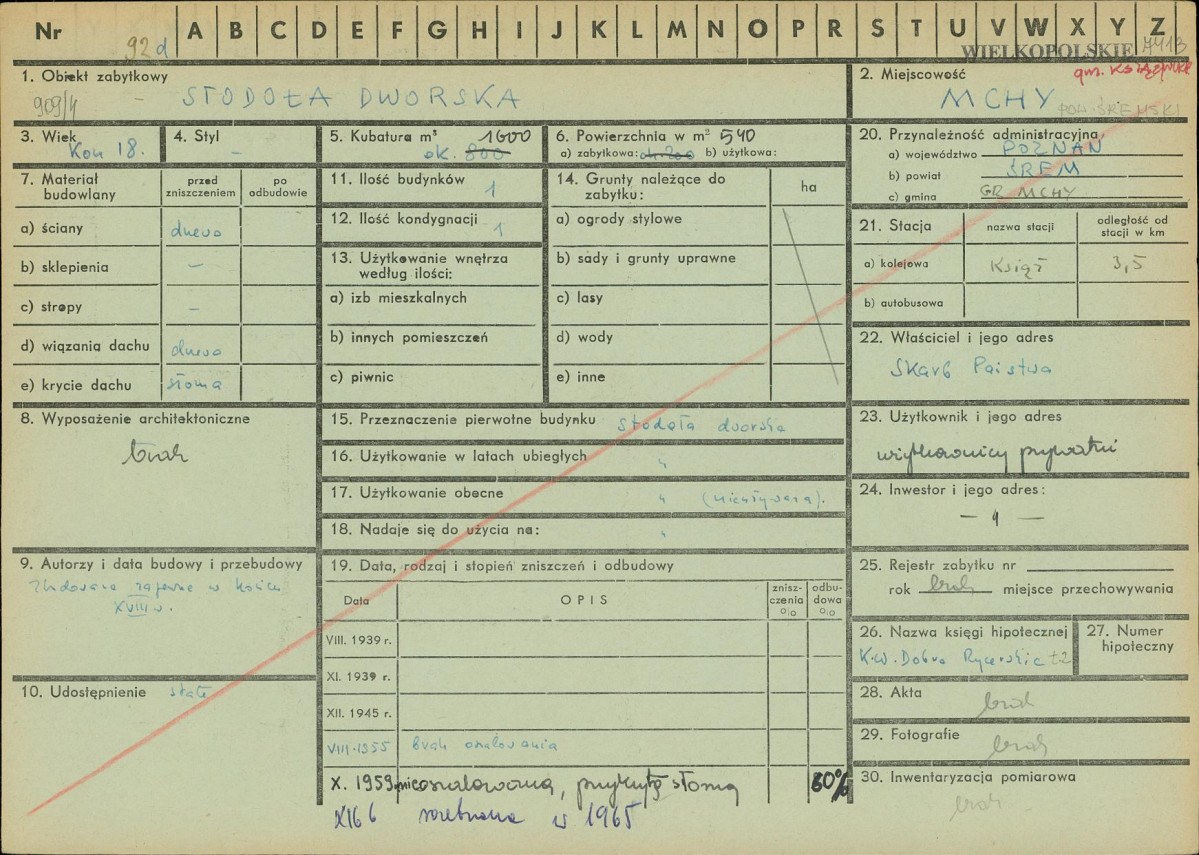 Nr 92d A B C D E F G H I J K L M N O P R S T U V W X Y Z
WIELKOPOLSKIE 7413
1. Obiekt zabytkowy
909/4 - STODOŁA DWORSKA
2. Miejscowość
gm. Książ Wlkp
MCHY POW. ŚREMSKI
3. Wiek
Kon 18.
4. Styl
-
5. Kubatura m³ 1600
ok. 800
6. Powierzchnia w m² 540
a) zabytkowa: ok. 200 b) użytkowa:
7. Materiał budowlany
przed zniszczeniem
po odbudowie
a) ściany drewo
b) sklepienia -
c) stropy -
d) wiązania dachu drewo
e) krycie dachu słoma
8. Wyposażenie architektoniczne
brak
9. Autorzy i data budowy i przebudowy
Zbudowana zapewne w końcu
XVIII w.
10. Udostępnienie stałe
11. Ilość budynków 1
12. Ilość kondygnacji 1
13. Użytkowanie wnętrza
według ilości:
a) izb mieszkalnych
b) innych pomieszczeń
c) piwnic
14. Grunty należące do
zabytku:
ha
a) ogrody stylowe
b) sady i grunty uprawne
c) lasy
d) wody
e) inne
15. Przeznaczenie pierwotne budynku stodoła dworska
16. Użytkowanie w latach ubiegłych "
17. Użytkowanie obecne " (nieużywana).
18. Nadaje się do użycia na: "
19. Data, rodzaj i stopień zniszczeń i odbudowy
Data
OPIS
znisz-
czenia
%
odbu-
dowa
%
VIII. 1939 r.
XI. 1939 r.
XII. 1945 r.
VIII.1955 brak oszalowania
X. 1959 nieoszalowana, przykryta słomą 60%
XI 66 rozebrana w 1965
20. Przynależność administracyjna
a) województwo POZNAŃ
b) powiat ŚREM
c) gmina GR MCHY
21. Stacja
nazwa stacji
odległość od
stacji w km
a) kolejowa Książ 3,5
b) autobusowa
22. Właściciel i jego adres
Skarb Państwa
23. Użytkownik i jego adres
użytkownicy prywatni
24. Inwestor i jego adres:
- " -
25. Rejestr zabytku nr
rok brak miejsce przechowywania
26. Nazwa księgi hipotecznej
K.W. Dobra Rycerskie t.2
27. Numer
hipoteczny
28. Akta
brak
29. Fotografie
brak
30. Inwentaryzacja pomiarowa
brak